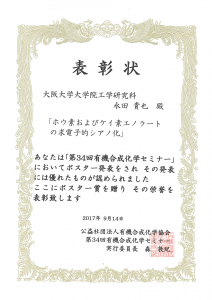 表彰状
大阪大学大学院工学研究科
永田 貴也 殿
「ホウ素およびケイ素エノラート
の求電子的シアノ化」
あなたは「第34回有機合成化学セミナー」
においてポスター発表をされ その発表
には優れたものが認められました
ここにポスター賞を贈り その学誉を
表彰致します
2017年 9月14日
公益社団法人有機合成化学協会
第34回有機合成化学セミナー
実行委員長 森 敦紀